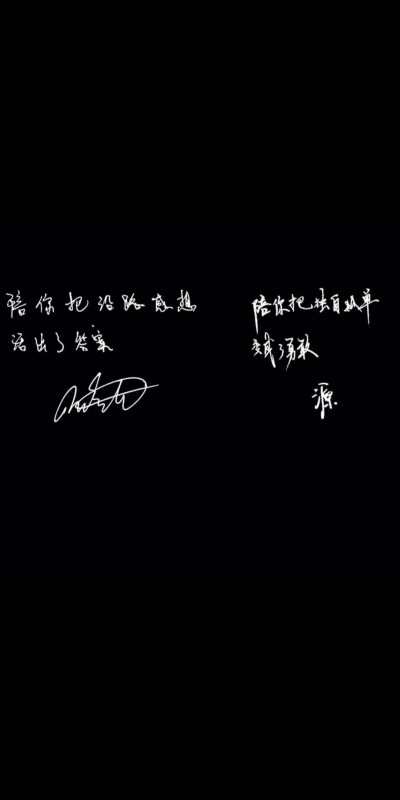 陪你把沿路感想
活出了答案
陪你把独自孤单
变成了勇敢
源.